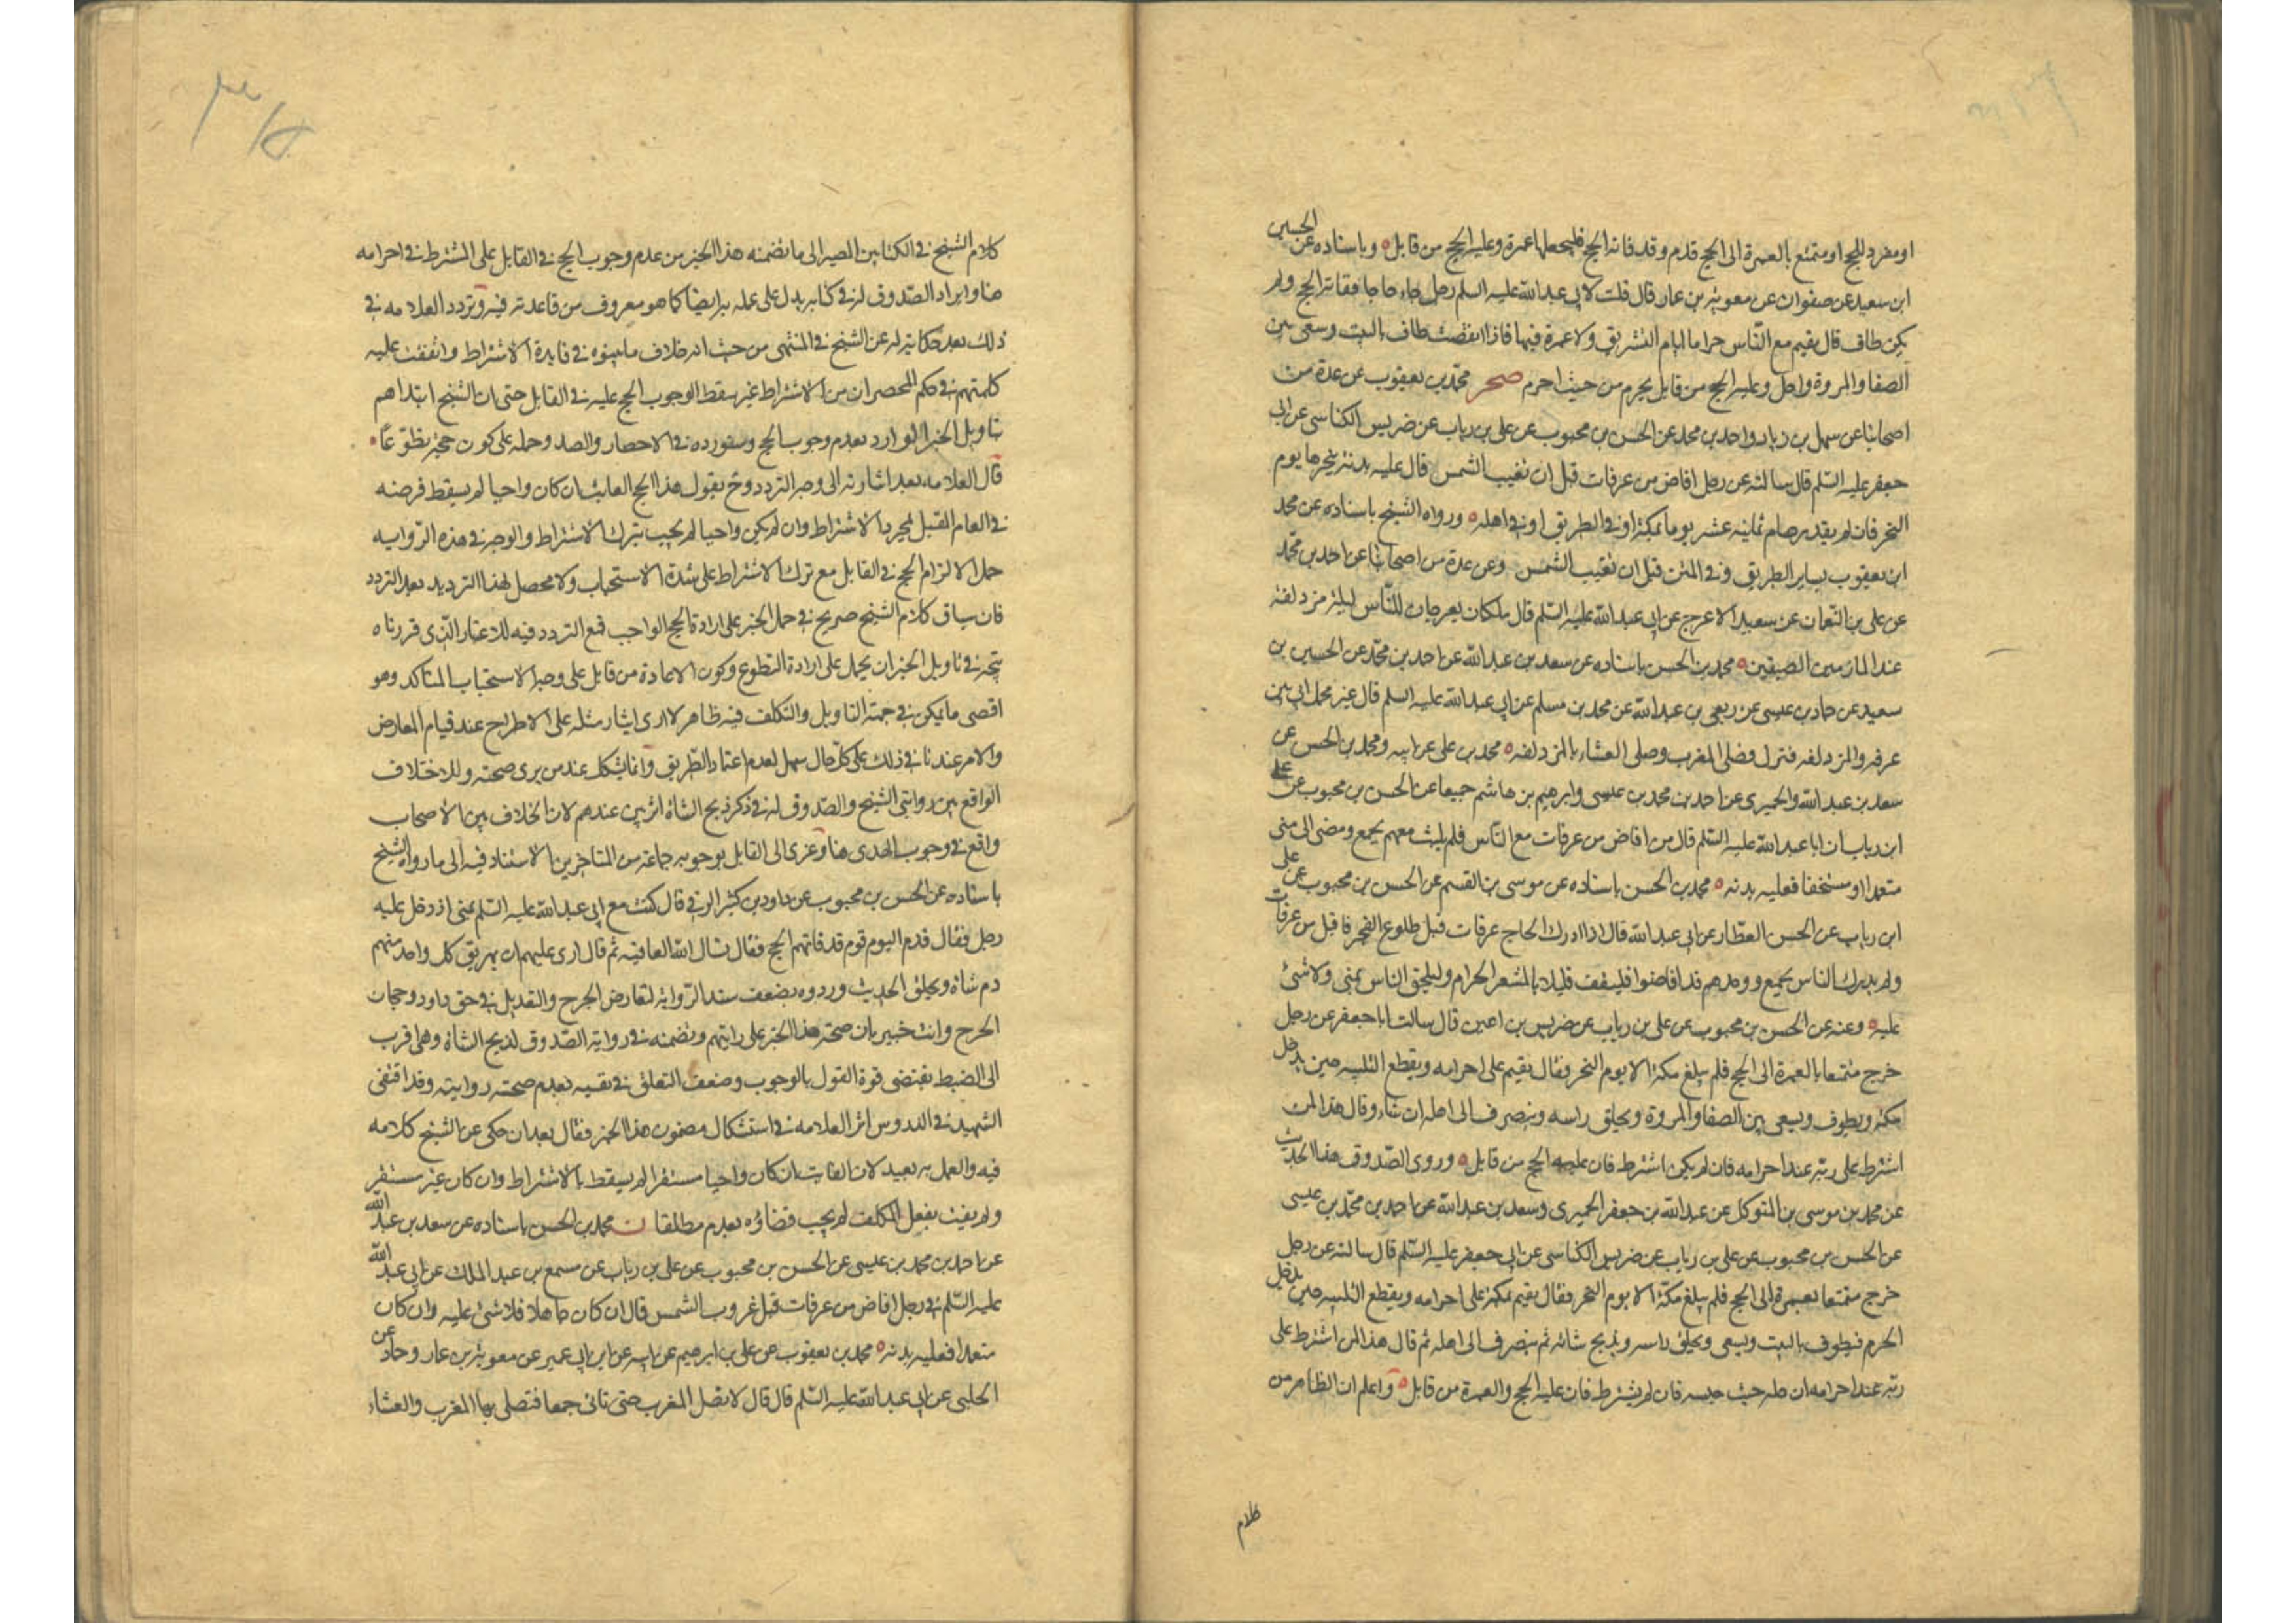 او مفرد للحج او متمتع بالعمرة الى الحج قدم وقد فاته الحج فليجعلها عمرة وعليه الحج من قابل وباسناده عن الحسين
ابن سعيد عن صفوان عن معوية بن عمار قال قلت لابي عبد الله عليه السلم رجل جاء حاجا ففاته الحج ولم
يكن طاف قال يقيم مع الناس حراما ايام التشريق ولا عمرة فيها فاذا انقضت طاف بالبيت وسعى بين
الصفا والمروة واحل وعليه الحج من قابل يحرم من حيث احرم صحر محمد بن يعقوب عن عدة من
اصحابنا عن سهل بن زياد واحمد بن محمد عن الحسن بن محبوب عن علي بن رياب عن ضريس الكناسي عن ابي
جعفر عليه السلم قال سالته عن رجل افاض من عرفات قبل ان تغيب الشمس قال عليه بدنة ينحرها يوم
النحر فان لم يقدر صام ثمانية عشر يوما بمكة او في الطريق او في اهله ورواه الشيخ باسناده عن محمد
ابن يعقوب بساير الطريق وفي المتن قبل ان تغيب الشمس وعن عدة من اصحابنا عن احمد بن محمد
عن علي بن النعمان عن سعيد الاعرج عن ابي عبد الله عليه السلم قال ملكان يفرجان للناس ليلة مزدلفة
عند المازمين الضيقين محمد بن الحسن باسناده عن سعد بن عبد الله عن احمد بن محمد عن الحسين بن
سعيد عن حماد بن عيسى عن ربعي بن عبد الله عن محمد بن مسلم عن ابي عبد الله عليه السلم قال عثر محمل ابي بين
عرفه والمزدلفه فنزل فصلى المغرب وصلى العشاء بالمزدلفه محمد بن علي عن ابيه ومحمد بن الحسن عن
سعد بن عبد الله والحميري عن احمد بن محمد بن عيسى وابرهيم بن هاشم جميعا عن الحسن بن محبوب عن علي
ابن رياب ان ابا عبد الله عليه السلم قال من افاض من عرفات مع الناس فلم يلبث معهم بجمع ومضى الى منى
متعمدا او مستخفا فعليه بدنه محمد بن الحسن باسناده عن موسى بن القسم عن الحسن بن محبوب عن علي
ابن رياب عن الحسن العطار عن ابي عبد الله قال اذا ادرك الحاج عرفات قبل طلوع الفجر فاقبل من عرفات
ولم يدرك الناس بجمع ووجدهم قد افاضوا فليقف قليلا بالمشعر الحرام وليلحق الناس بمنى ولا شئ
عليه وعنه عن الحسن بن محبوب عن علي بن رياب عن ضريس بن اعين قال سالت ابا جعفر عن رجل
خرج متمتعا بالعمرة الى الحج فلم يبلغ مكة الا يوم النحر فقال يقيم على احرامه ويقطع التلبيه حين يدخل
مكة ويطوف ويسعى بين الصفا والمروة ويحلق راسه وينصرف الى اهله ان شاء وقال هذا لمن
اشترط على ربه عند احرامه فان لم يكن اشترط فان عليه الحج من قابل وروى الصدوق هذا الحديث
عن محمد بن موسى بن المتوكل عن عبد الله بن جعفر الحميري وسعد بن عبد الله عن احمد بن محمد بن عيسى
عن الحسن بن محبوب عن علي بن رياب عن ضريس الكناسي عن ابي جعفر عليه السلم قال سالته عن رجل
خرج متمتعا بعمرة الى الحج فلم يبلغ مكة الا يوم النحر فقال يقيم بمكة على احرامه ويقطع التلبيه حين يدخل
الحرم فيطوف بالبيت ويسعى ويحلق راسه ويذبح شاته ثم ينصرف الى اهله ثم قال هذا لمن اشترط على
ربه عند احرامه ان حله حيث حبسه فان لم يشترط فان عليه الحج والعمرة من قابل واعلم ان الظاهر من
كلام
كلام الشيخ في الكتابين المصير الى ما تضمنه هذا الخبر من عدم وجوب الحج في القابل على المشترط في احرامه
هنا وايراد الصدوق له في كتابه يدل على عمله به ايضا كما هو معروف من قاعدته فيه وتردد العلامه في
ذلك بعد حكايته له عن الشيخ في المنتهى من حيث انه خلاف ما بينوه في فايدة الاشتراط واتفقت عليه
كلمتهم في حكم المحصر ان من الاشتراط غير مسقط الوجوب الحج عليه في القابل حتى ان الشيخ ابتداهم
بتاويل الخبر الوارد بعدم وجوب الحج وسنورده في الاحصار والصد وحمله على كون حجه تطوعا
قال العلامه بعد اشارته الى وجه التردد ونحن نقول هذا الحج الفائت ان كان واجبا لم يسقط فرضه
في العام المقبل بمجرد الاشتراط وان لم يكن واجبا لم يجب بترك الاشتراط والوجه في هذه الروايه
حمل الالزام الحج في القابل مع ترك الاشتراط على شدة الاستحباب ولا محصل لهذا الترديد بعد التردد
فان سياق كلام الشيخ صريح في حمل الخبر على ارادة الحج الواجب فمع التردد فيه للاعتبار الذي قررناه
يتجه في تاويل الخبر ان يحمل على ارادة التطوع وكون الاعادة من قابل على وجه الاستحباب المتاكد وهو
اقصى ما يمكن في جهة التاويل والتكلف فيه ظاهر لا ارى ايثار مثله على الاطراح عند قيام المعارض
والامر عندنا في ذلك على كل حال سهل لعدم اعتماد الطريق وانما يشكل عند من يرى صحته وللاختلاف
الواقع بين روايتي الشيخ والصدوق له في ذكر ذبح الشاة اثر بين عندهم لان الخلاف بين الاصحاب
واقع في وجوب الهدى هنا وعزى الى القايل بوجوبه جماعة من المتاخرين الاستناد فيه الى ما رواه الشيخ
باسناده عن الحسن بن محبوب عن داود بن كثير الرقي قال كنت مع ابي عبد الله عليه السلم بمنى اذ دخل عليه
رجل فقال قدم اليوم قوم قد فاتهم الحج فقال نسال الله العافيه ثم قال ارى عليهم ان يهريق كل واحد منهم
دم شاة ويحلق الحديث وردوه بضعف سند الرواية لتعارض الجرح والتعديل في حق داود ورجحان
الجرح وانت خبير بان صحة هذا الخبر على رايتهم وتضمنه في رواية الصدوق لذبح الشاة وهى اقرب
الى الضبط يقتضى قوة القول بالوجوب وضعف التعلق في نفيه بعدم صحته روايته وقد اقتفى
الشهيد في الدروس اثر العلامه في استشكال مضمون هذا الخبر فقال بعد ان حكى عن الشيخ كلامه
فيه والعمل به بعيد لان الفايت ان كان واجبا مستقرا لم يسقط بالاشتراط وان كان غير مستقر
ولم يفت بفعل المكلف لم يجب قضاؤه بعدم مطلقا ن محمد بن الحسن باسناده عن سعد بن عبد الله
عن احمد بن محمد بن عيسى عن الحسن بن محبوب عن علي بن رياب عن مسمع بن عبد الملك عن ابي عبد الله
عليه السلم في رجل افاض من عرفات قبل غروب الشمس قال ان كان جاهلا فلا شئ عليه وان كان
متعمدا فعليه بدنه محمد بن يعقوب عن علي بن ابرهيم عن ابيه عن ابن ابي عمير عن معوية بن عمار وحماد عن
الحلبى عن ابي عبد الله عليه السلم قال قال لا تصل المغرب حتى تاتى جمعا فتصلى بها المغرب والعشاء